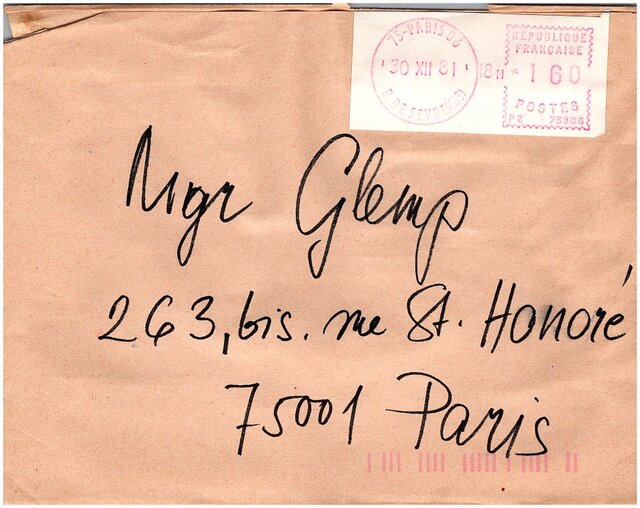 75-PARIS 06
30 XII 81 18H
R. DE SEVRES(69)
REPUBLIQUE
FRANÇAISE
* 160
POSTES
P2 - 75306
Mgr Glemp
263, bis. rue St. Honoré
75001 Paris